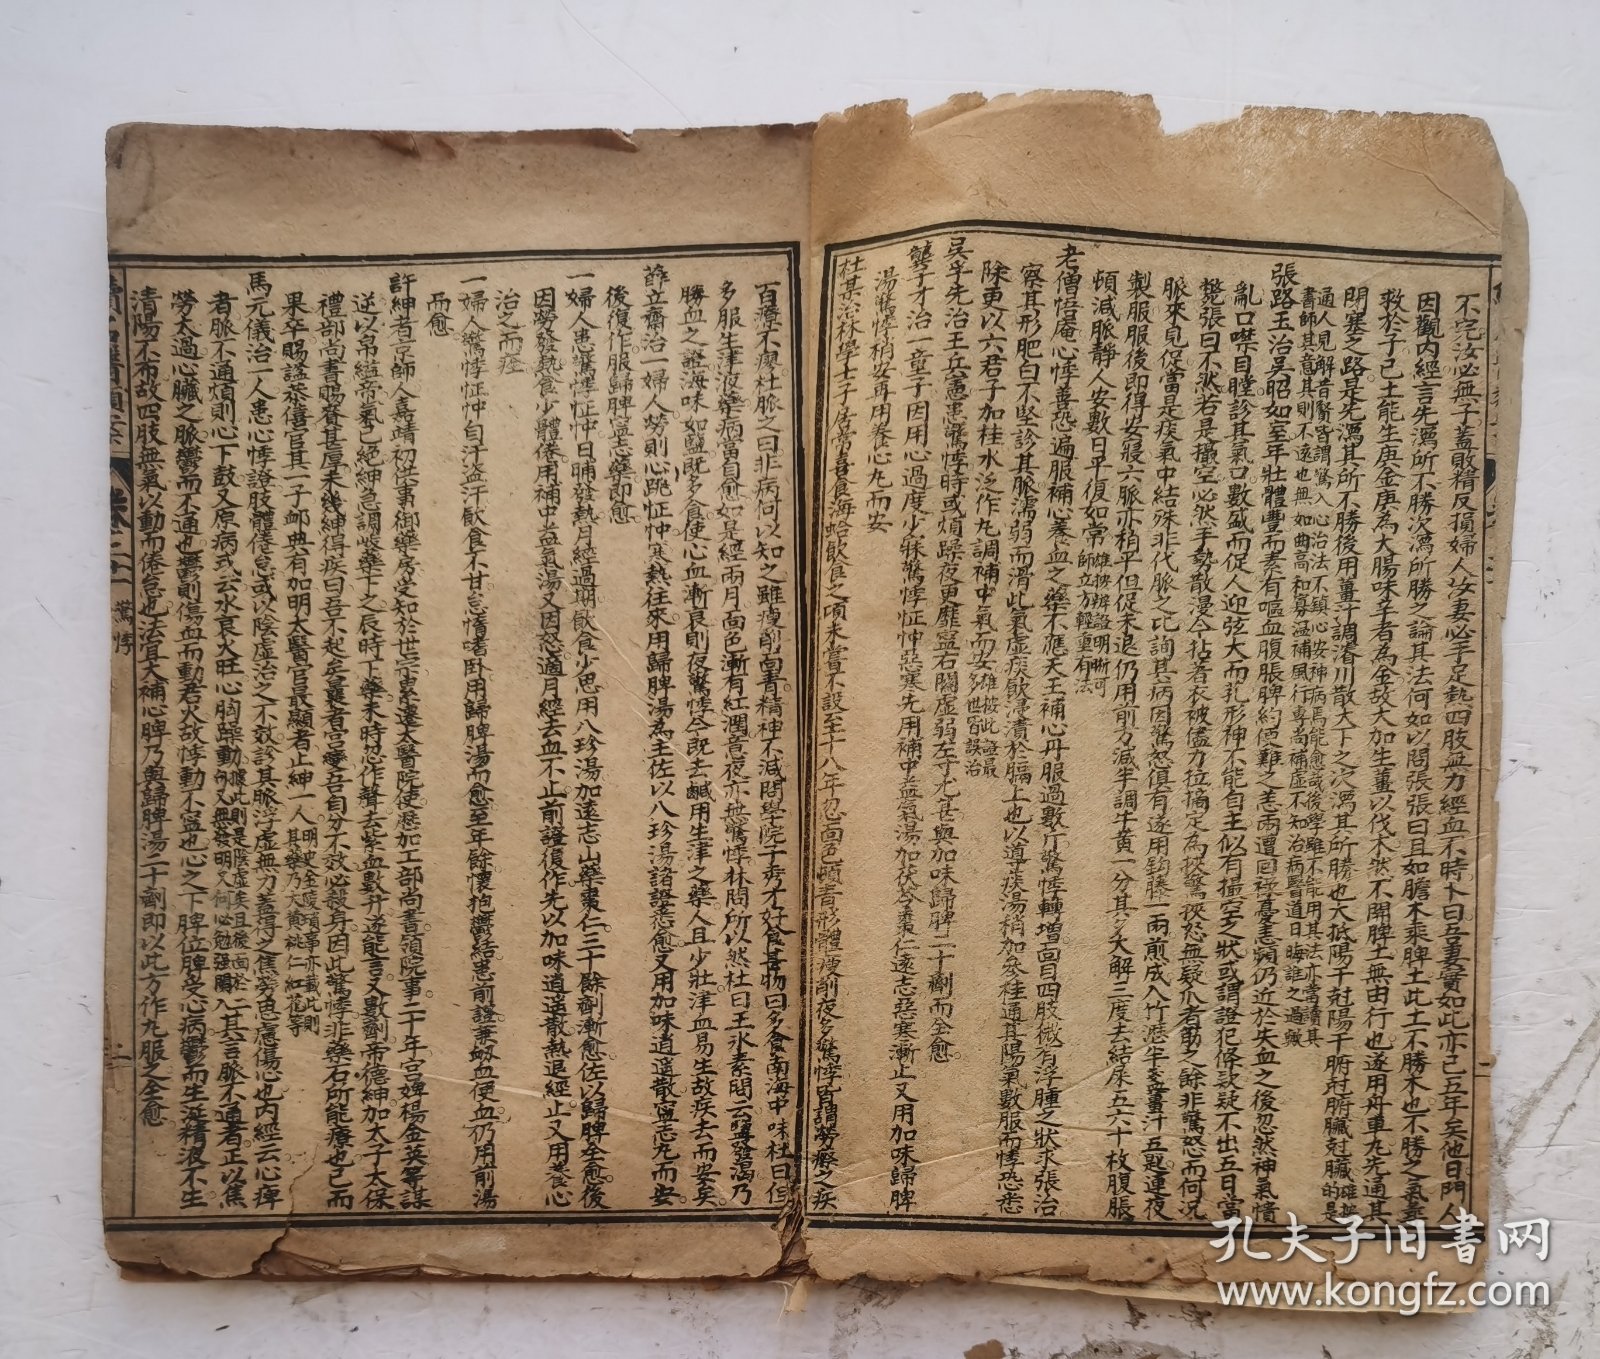 不完汝必無子蓋敗精反損婦人汝妻必手足熱四肢無力經血不時卜曰吾妻實如此亦已五年矣他日門人
因觀內經言先瀉所不勝次瀉所勝之論其法何如以問張張曰且如膽木乘脾土此土不勝木也不勝之氣尋
救於子己土能生庚金庚為大腸味辛者為金故大加生薑以伐木然不開脾土無由行也遂用舟車丸先通其
閉塞之路是先瀉其所不勝後用薑汁調濬川散大下之次瀉其所勝也大抵陽干尅陽干腑尅腑臟尅臟
張路玉治吳昭如室年壯體豐而素有嘔血腹脹脾約便難之恙兩遭回祿憂恚頻仍近於失血之後忽然神氣憒
亂口噤目瞠診其氣口數盛而促人迎弦大而芤形神不能自主似有撮空之狀或謂證犯條款疑不出五日當
斃張曰不然若是撮空必然手勢散漫今拈著衣被儘力拉摘定為挾驚挾怒無疑爪者筋之餘非驚怒而何況
脈來見促當是痰氣中結殊非代脈之比詢其病因驚怒俱有遂用鈎藤一兩煎成入竹瀝半盞薑汁五匙連夜
製服服後即得安寢六脈亦稍平但促未退仍用前方減半調牛黃一分其夕大解三度去結屎五六十枚腹脹
頓減脈靜人安數日平復如常
老僧悟庵心悸善恐遍服補心養血之藥不應天王補心丹服過數斤驚悸轉增面目四肢微有浮腫之狀求張治
察其形肥白不堅診其脈濡弱而滑此氣虛痰飲浸漬於膈上也以導痰湯稍加參桂通其陽氣數服而悸恐悉
除更以六君子加桂水泛作丸調補中氣而安
吳孚先治王兵憲患驚悸時或煩躁夜更靡寧右關虛弱左寸尤甚與加味歸脾二十劑而全愈
龔子才治一童子因用心過度少寐驚悸怔忡惡寒先用補中益氣湯加茯苓棗仁遠志惡寒漸止又用加味歸脾
湯驚悸稍安再用養心丸而安
杜某治林學士子居嘗喜食海蛤飲食之頃未嘗不設至十八年忽面色頓青形體瘦削夜多驚悸皆謂勞瘵之疾
百療不瘳杜脈之曰非病何以知之雖瘦削面青精神不減問學院子秀才好食甚物曰多食南海中味杜曰但
多服生津液藥病當自愈如是經兩月面色漸有紅潤意夜亦無驚悸林問所以然杜曰王冰素問云鹽發渴乃
勝血之證海味如鹽既多食使心血漸衰則夜驚悸今既去鹹用生津之藥人且少壯津血易生故疾去而安矣
薛立齋治一婦人勞則心跳怔忡寒熱往來用歸脾湯為主佐以八珍湯諸證悉愈又用加味逍遙散寧志丸而安
後復作服歸脾定志藥即愈
一婦人患驚悸怔忡日晡發熱月經過期飲食少思用八珍湯加遠志山藥棗仁三十餘劑漸愈佐以歸脾全愈後
因勞發熱食少體倦用補中益氣湯又因怒適月經去血不止前證復作先以加味逍遙散熱退經止又用養心
治之而痊
一婦人驚悸怔忡自汗盜汗飲食不甘怠惰嗜臥用歸脾湯而愈至年餘懷抱鬱結患前證兼衂血便血仍用前湯
而愈
許紳者京師人嘉靖初供事御藥房受知於世宗累遷太醫院使歷加工部尚書領院事二十年宮婢楊金英等謀
逆以帛縊帝氣已絕紳急調峻藥下之辰時下藥未時忽作聲去紫血數升遂能言又數劑而愈帝德紳加太子太保
禮部尚書賜賚甚厚未幾紳得疾曰吾不起矣曩者宮變吾自分不效必殺身因此驚悸非藥石所能療也已而
果卒賜諡恭僖官其一子卹典有加明太醫官最顯者止紳一人
馬元儀治一人患心悸證肢體倦怠或以陰虛治之不效診其脈浮虛無力蓋得之焦勞思慮傷心也內經云心痺
者脈不通煩則心下鼓又原病式云水衰火旺心胸躁動
勞太過心臟之脈鬱而不通也鬱則傷血而動君火故悸動不寧也心之下脾位脾受心病鬱而生涎精液不生
清陽不布故四肢無氣以動而倦怠也法宜大補心脾乃與歸脾湯二十劑即以此方作丸服之全愈
驚悸
二
孔夫子旧书网
www.kongfz.com